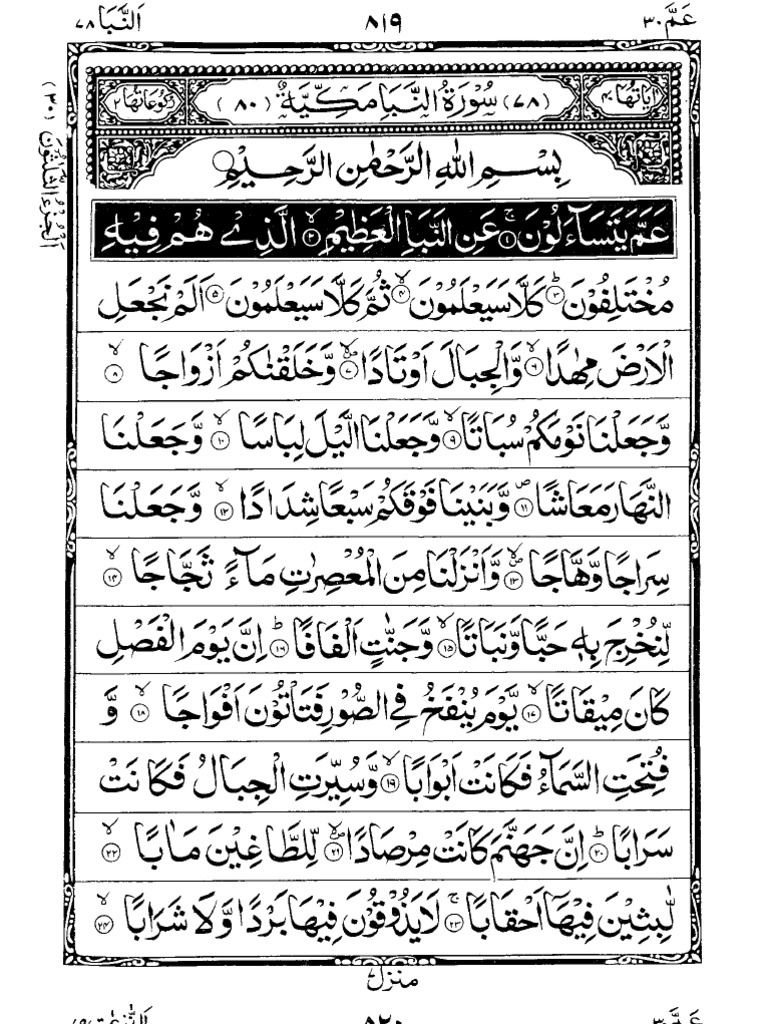 عَمَّ ٣٠ ٨١٩ اَلنَّبَا ٧٨
اٰيَاتُهَا ٤٠ (٧٨) سُوْرَةُ النَّبَاِ مَكِّيَّةٌ (٨٠) رُكُوْعَاتُهَا ٢
بِسْمِ اللّٰهِ الرَّحْمٰنِ الرَّحِيْمِ
اَلْجُزْءُ الثَّلٰثُوْنَ (٣٠)
عَمَّ يَتَسَآءَلُوْنَ ۚ‏﴿۱﴾ عَنِ النَّبَاِ الْعَظِيْمِ ۙ‏﴿۲﴾ الَّذِىْ هُمْ فِيْهِ
مُخْتَلِفُوْنَ ؕ‏﴿۳﴾ كَلَّا سَيَعْلَمُوْنَ ۙ‏﴿۴﴾ ثُمَّ كَلَّا سَيَعْلَمُوْنَ ﴿۵﴾ اَلَمْ نَجْعَلِ
الْاَرْضَ مِهٰدًا ۙ‏﴿۶﴾ وَّالْجِبَالَ اَوْتَادًا ۪ۙ‏﴿۷﴾ وَّخَلَقْنٰكُمْ اَزْوَاجًا ۙ‏﴿۸﴾
وَّجَعَلْنَا نَوْمَكُمْ سُبَاتًا ۙ‏﴿۹﴾ وَّجَعَلْنَا الَّيْلَ لِبَاسًا ۙ‏﴿۱۰﴾ وَّجَعَلْنَا
النَّهَارَ مَعَاشًا ۪‏﴿۱۱﴾ وَّبَنَيْنَا فَوْقَكُمْ سَبْعًا شِدَادًا ۙ‏﴿۱۲﴾ وَّجَعَلْنَا
سِرَاجًا وَّهَّاجًا ۪ۙ‏﴿۱۳﴾ وَّاَنْزَلْنَا مِنَ الْمُعْصِرٰتِ مَآءً ثَجَّاجًا ۙ‏﴿۱۴﴾
لِّنُخْرِجَ بِهٖ حَبًّا وَّنَبَاتًا ۙ‏﴿۱۵﴾ وَّجَنّٰتٍ اَلْفَافًا ؕ‏﴿۱۶﴾ اِنَّ يَوْمَ الْفَصْلِ
كَانَ مِيْقَاتًا ۙ‏﴿۱۷﴾ يَّوْمَ يُنْفَخُ فِى الصُّوْرِ فَتَاْتُوْنَ اَفْوَاجًا ۙ‏﴿۱۸﴾ وَّ
فُتِحَتِ السَّمَآءُ فَكَانَتْ اَبْوَابًا ۙ‏﴿۱۹﴾ وَّسُيِّرَتِ الْجِبَالُ فَكَانَتْ
سَرَابًا ؕ‏﴿۲۰﴾ اِنَّ جَهَنَّمَ كَانَتْ مِرْصَادًا ۪ۙ‏﴿۲۱﴾ لِّلطَّاغِيْنَ مَاٰبًا ۙ‏﴿۲۲﴾
لّٰبِثِيْنَ فِيْهَاۤ اَحْقَابًا ۚ‏﴿۲۳﴾ لَا يَذُوْقُوْنَ فِيْهَا بَرْدًا وَّلَا شَرَابًا ۙ‏﴿۲۴﴾
منزل ٧
عَمَّ ٣٠ ٨٢٠ اَلنّٰزِعٰت ٧٩